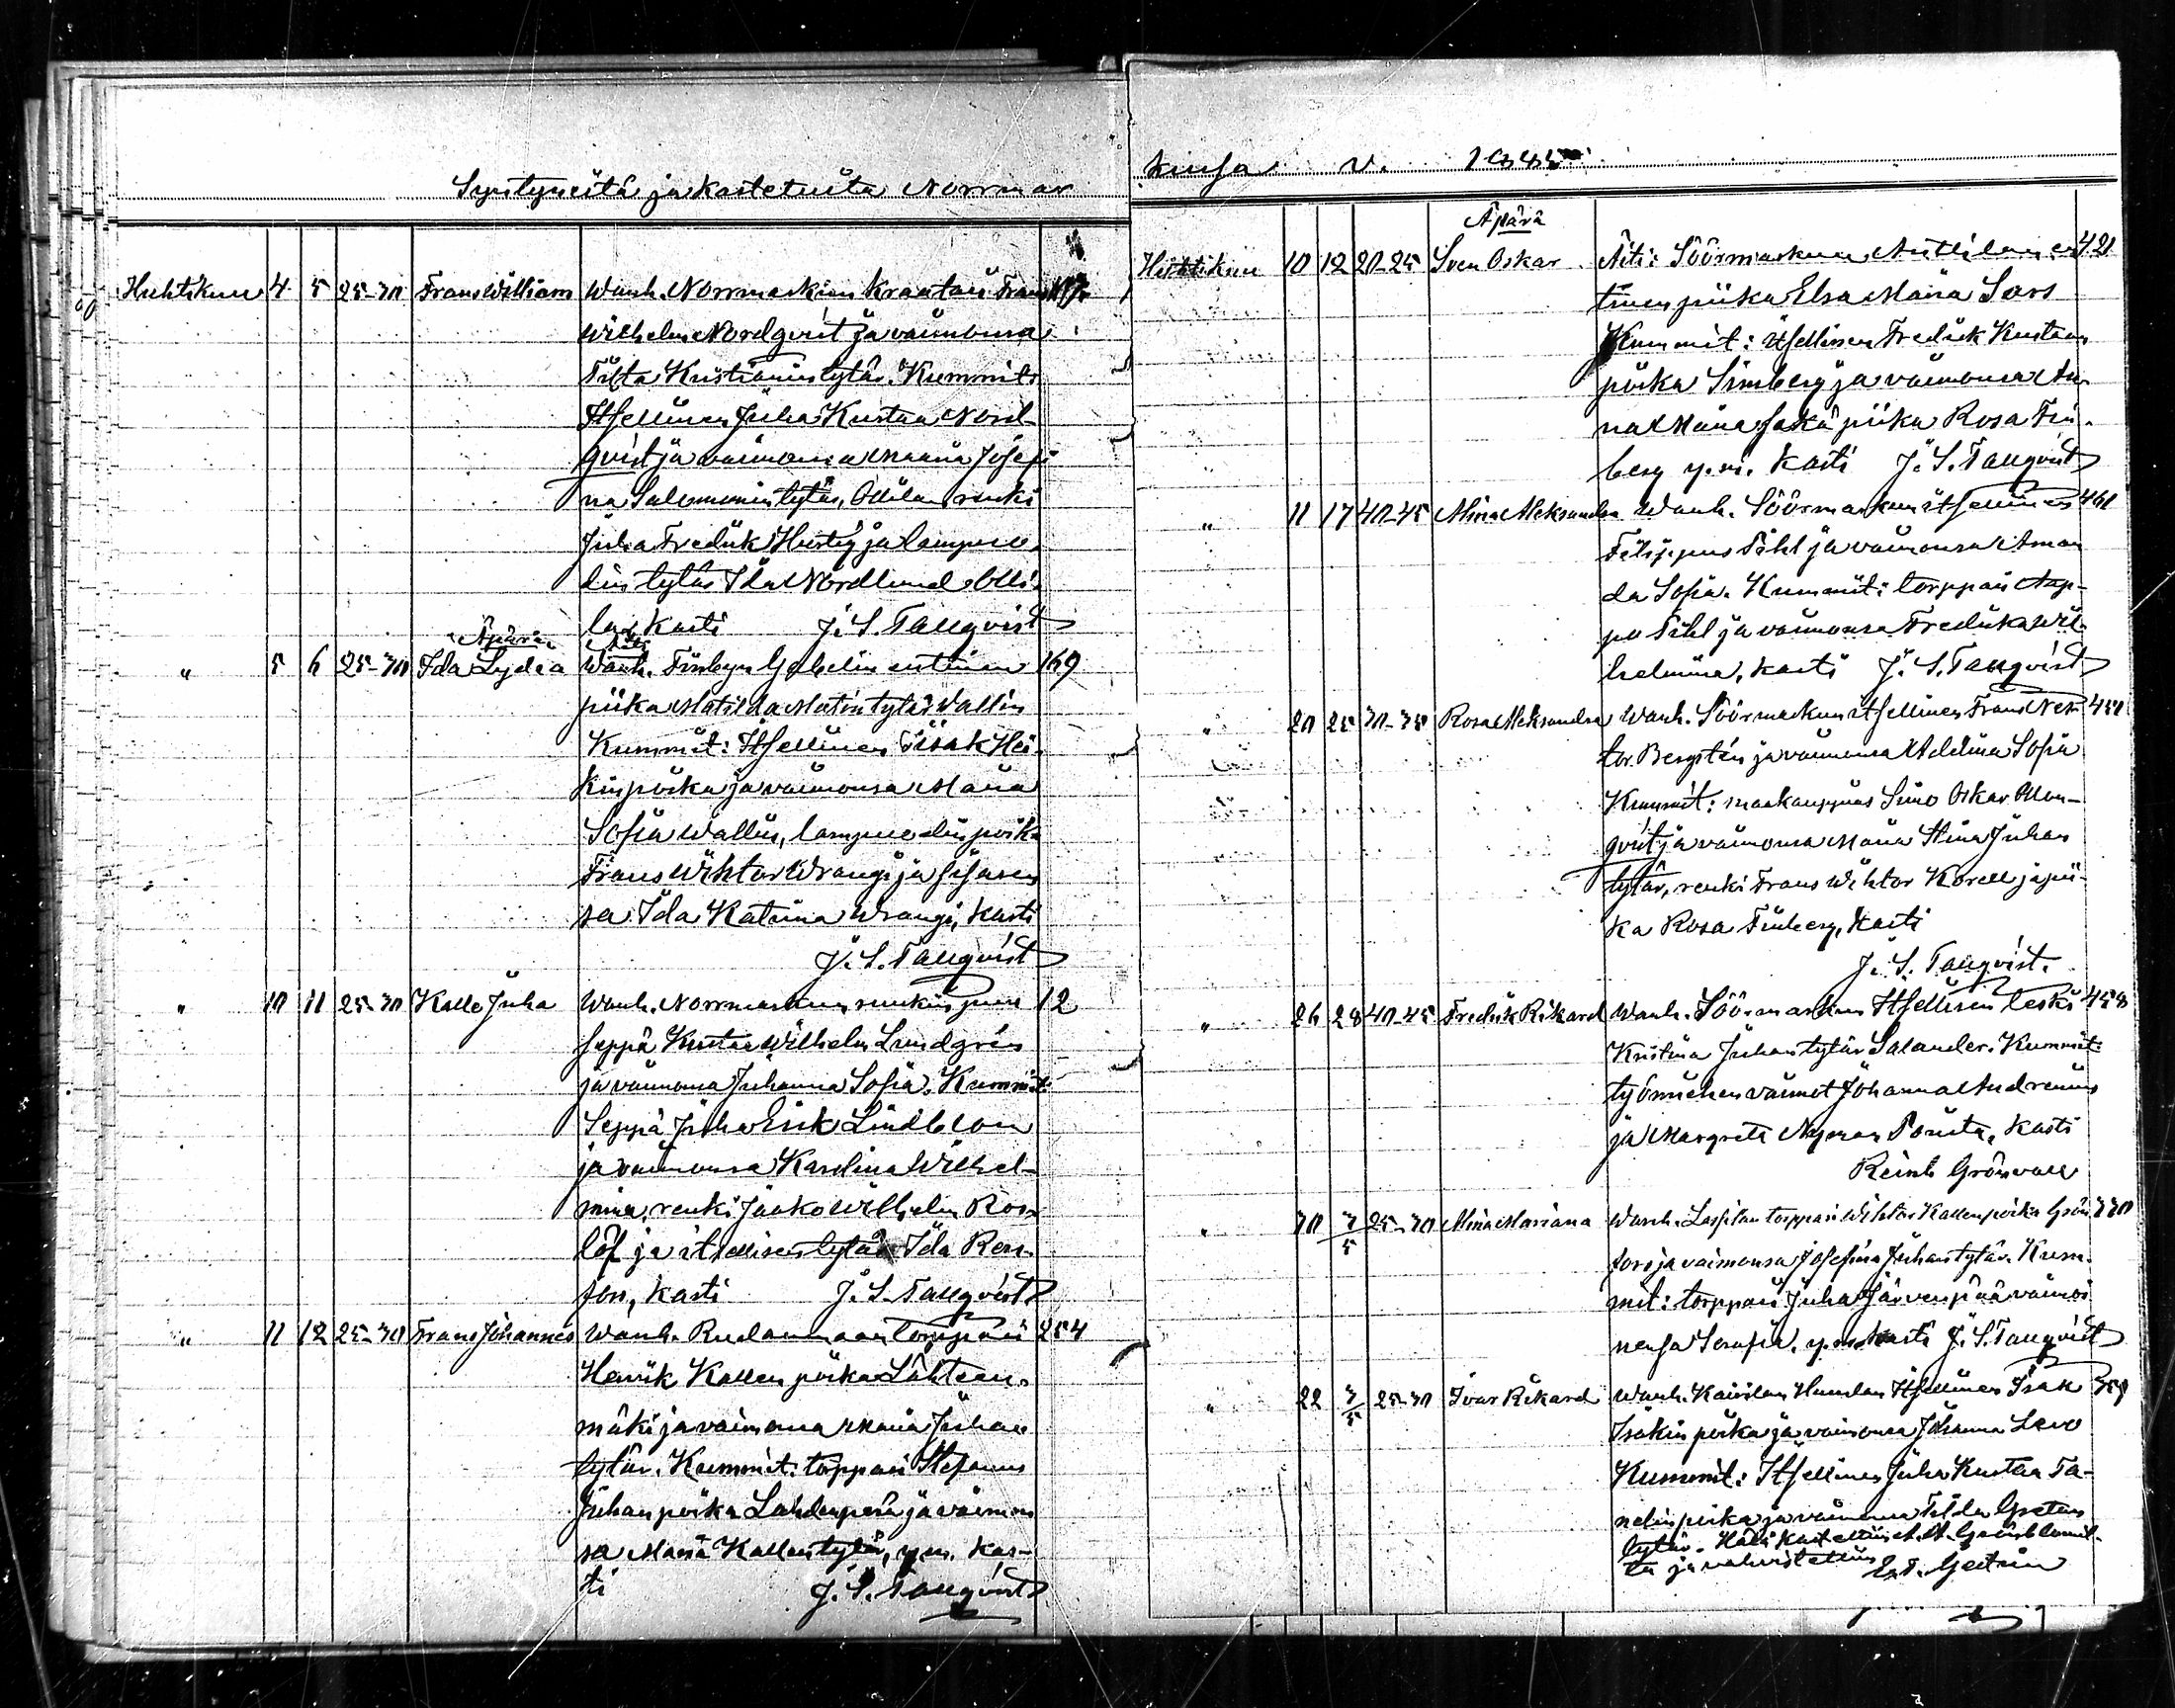 Syntyneitä ja kastetuita Norrmar
Huhtikuu 4 5 25-30 Frans William Wanh. Norrmarkun kraatari Frans
Wilhelm Nordqvist ja vaimonsa
Kristianintytär. Kummit:
Itsellinen Juha Kustaa Nord-
qvist ja vaimonsa Maria Josefi-
na Salomonintytär, Ollilan renki
Juha Fredrik ja lampuo-
din tytär Ida Nordlund Olli-
lan kasti J. S. Tallqvist
Äpärä
" 5 6 25-30 Ida Lydia Wanh. entinen 169
piika Matilda Matintytär Wallin
Kummit: Itsellinen Iisak Hei-
kinpoika ja vaimonsa Maria
Sofia Wallin, lampuodin poika
Frans Wihtor Wrangi ja sisaren-
sa Ida Katrina Wrangi, kasti
J. S. Tallqvist
" 10 11 25-30 Kalle Juha Wanh. Norrmarkun 12
seppä Kustaa Wilhelm Lundgrén
ja vaimonsa Juhanna Sofia. Kummit:
Seppä Juha Erik Lindblom
ja vaimonsa Karolina Wilhel-
mina, renki Jaako Wilhelm Ros-
löf ja itsellisen tytär Ida
kasti J. S. Tallqvist
" 11 12 25-30 Frans Johannes Wanh. torppari 254
Henrik Kallenpoika Lähteen-
mäki ja vaimonsa Maria Juhan
tytär. Kummit: torppari Stefanus
Juhanpoika Lahdenperä ja vaimon
sa Maria Kallentytär, y.m. kas-
ti J. S. Tallqvist
kussa v. 188
Äpärä
Huhtikuu 10 12 20-25 Sven Oskar Äiti: Söörmarkun Anttilan en- 421
tinen piika Elsa Maria Sars
Kummit: Itsellinen Fredrik Kustaan
poika Simberg ja vaimonsa An-
na Maria sekä piika Rosa Fin-
berg y.m. kasti J. S. Tallqvist
" 11 17 40-45 Alina Aleksandra Wanh. Söörmarkun itsellinen 461
Filippus Pihl ja vaimonsa Aman
da Sofia. Kummit: torppari Aap-
po Pihl ja vaimonsa Fredrika Wil-
helmina, kasti J. S. Tallqvist
" 20 25 30-35 Rosa Aleksandra Wanh. Söörmarkun itsellinen Frans Nes-
tor Bergstén ja vaimonsa Adolfina Sofia
Kummit: maakauppias Simo Oskar
qvist ja vaimonsa Maria Stina Juhan
tytär, renki Frans Wihtor Korell ja pii-
ka Rosa Finberg, kasti
J. S. Tallqvist.
" 26 28 40-45 Fredrik Rikard Wanh. Söörmarkun Itsellisen leski 458
Kristina Juhantytär Salander. Kummit:
työmiehen vaimot Johanna Andrenius
ja Margreta Nyman Porista, kasti
Reinh Grönvall
" 30 3/5 25-30 Alina Mariana Wanh. Lassilan torppari Wihtor Kallenpoika Grön- 330
fors ja vaimonsa Josefina Juhantytär. Kum-
mit: torppari Juha Järvenpää vaimoi
nensa Serafia, y.m. kasti J. S. Tallqvist
" 22 3/5 25-30 Ivar Rikard Wanh. Kairilan Itsellinen Isak
Isakinpoika ja vaimonsa Johanna Levo
Kummit: Itsellinen Juha Kustaa Ta-
nelinpoika ja vaimonsa Tilda Gretan
tytär. Hätä
ta ja vahvistettiin